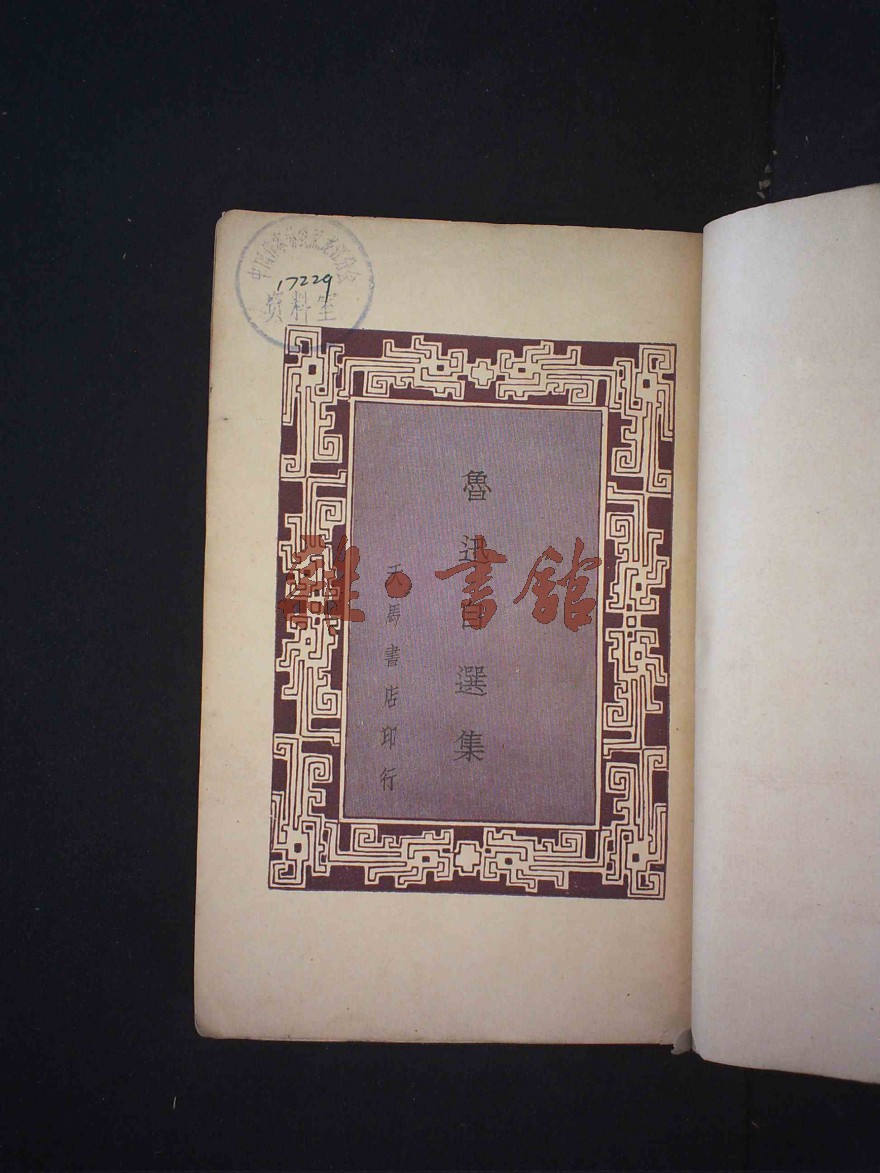 中国
分会
17229
资料室
魯迅自選集
天馬書店印行
雜·書館